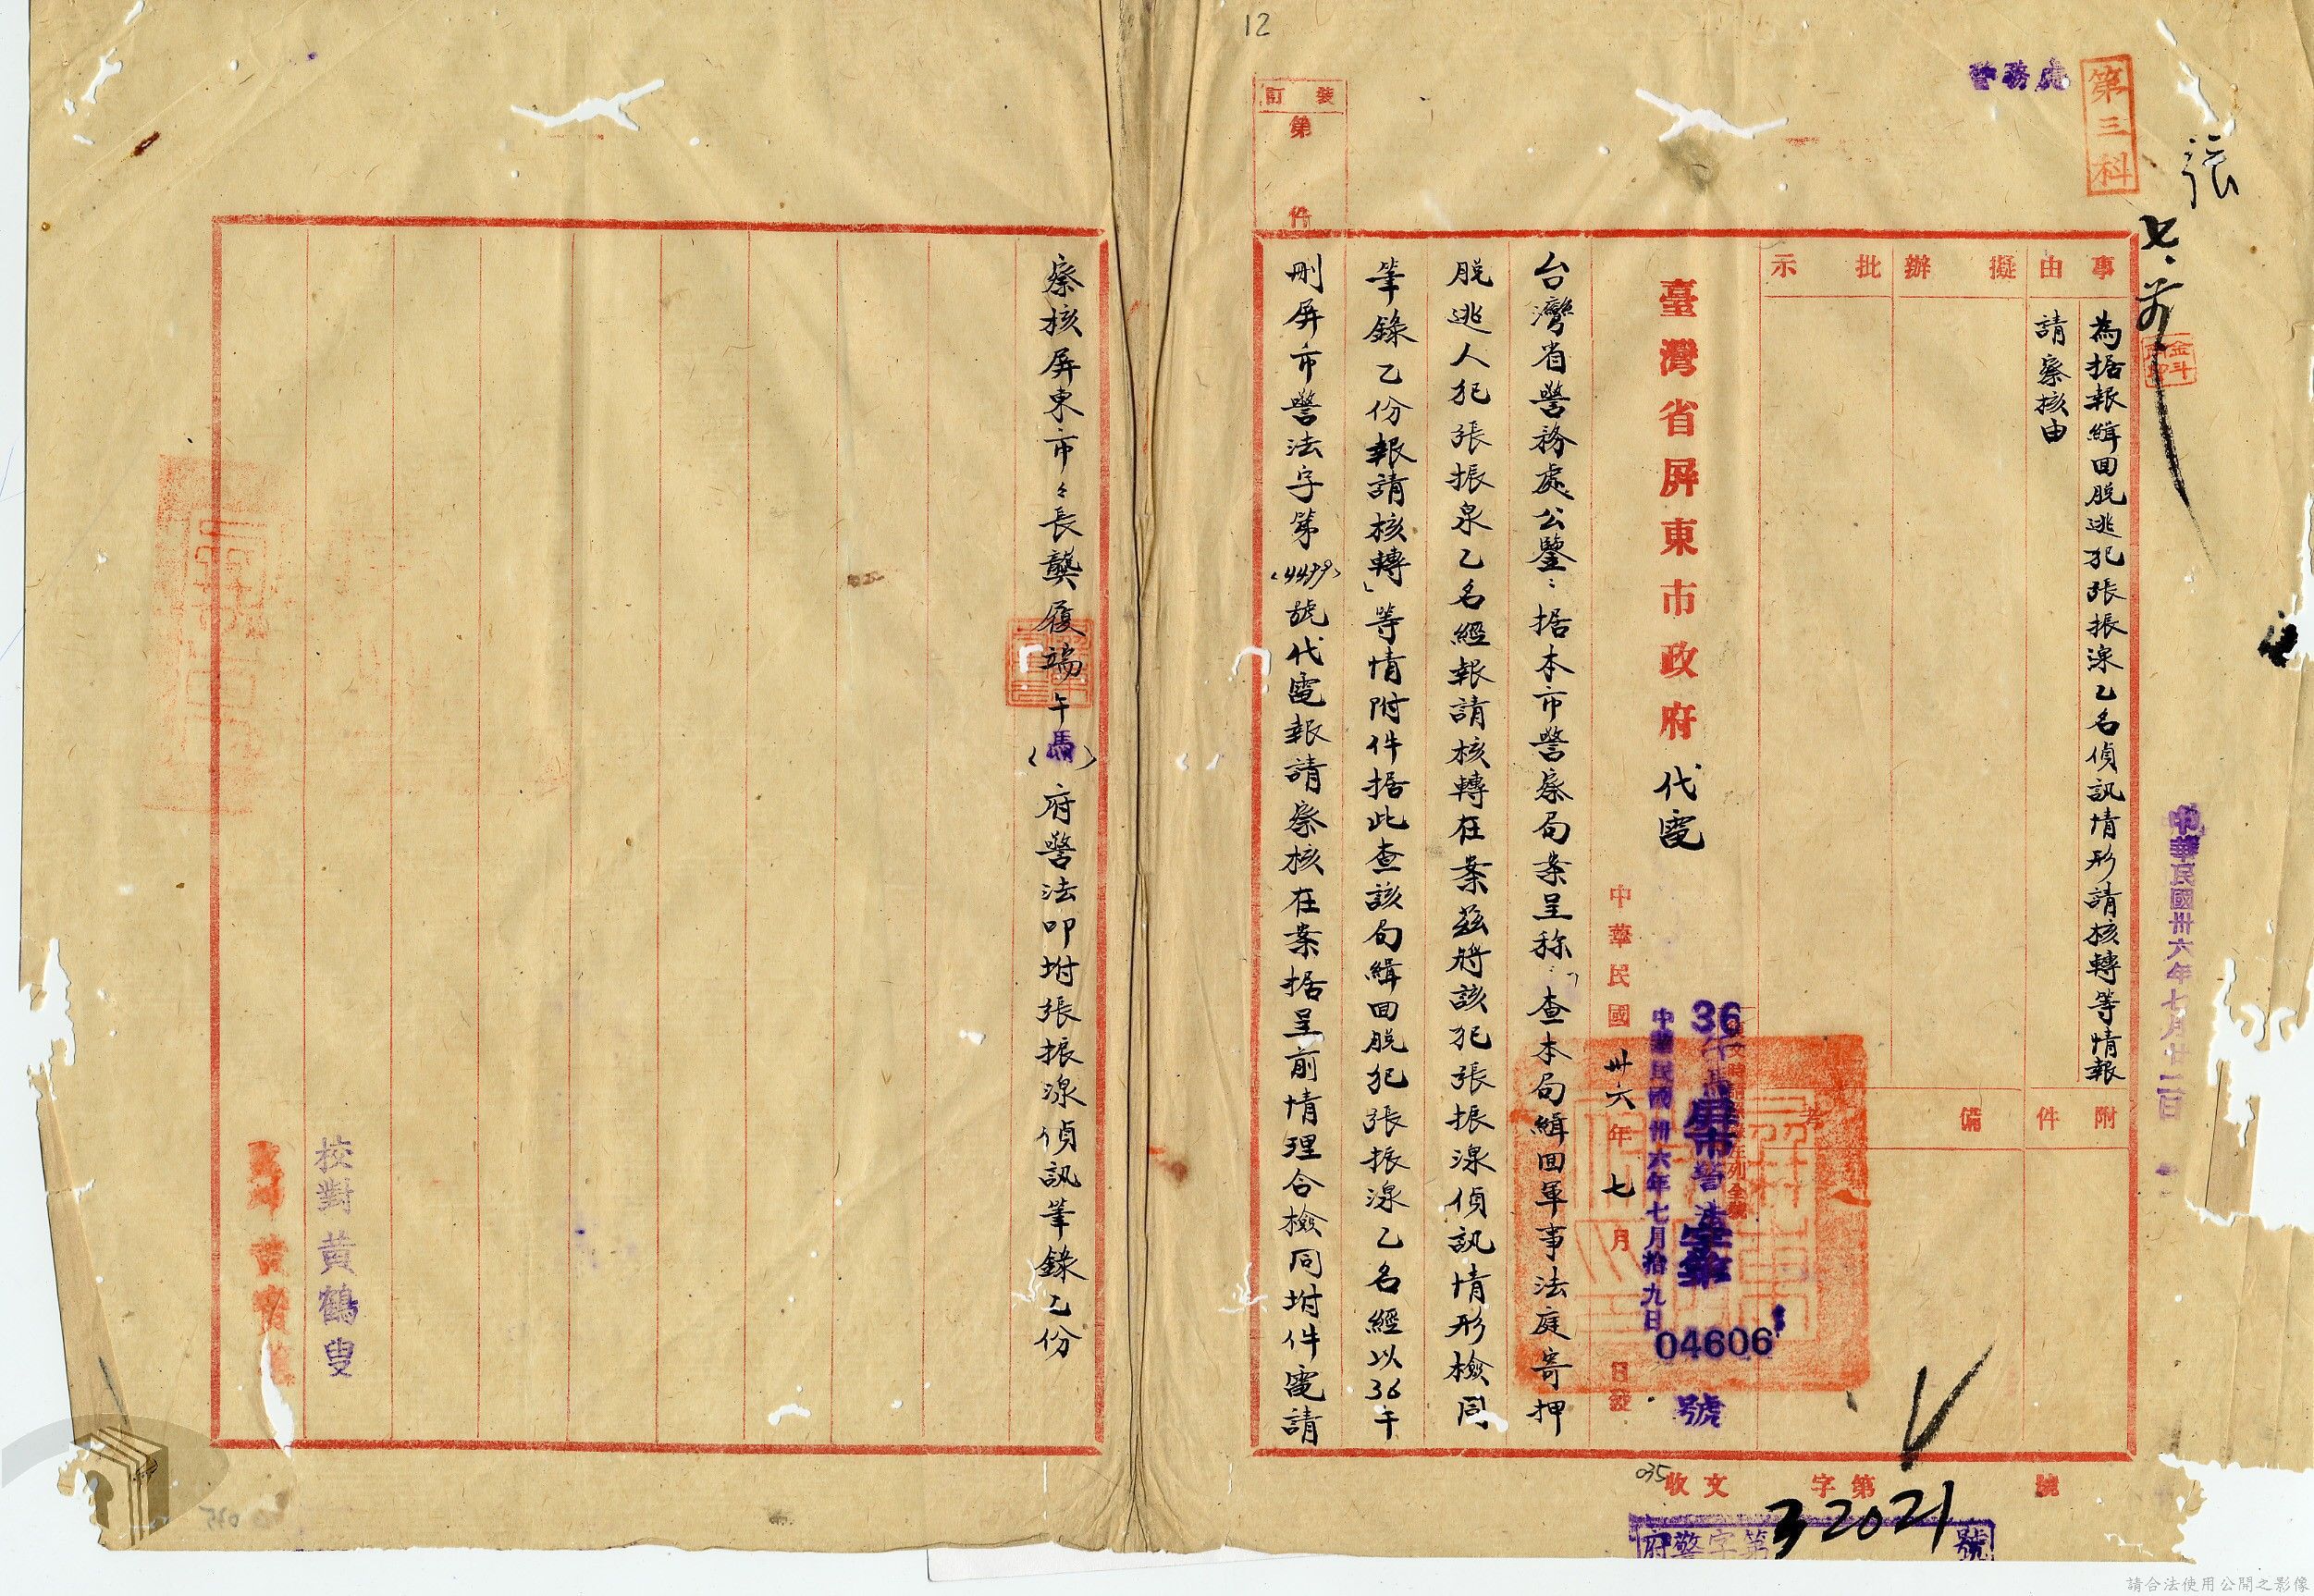 12
警務處
第三科
張
裝訂
第
件
事由
為据報緝回脫逃犯張振湶乙名偵訊情形請核轉等情報
請察核由
擬辦
批示
附件
備
臺灣省屏東市政府代電
中華民國卅六年七月
中華民國卅六年七月拾九日
36
屏市警法字第
04606
號
中華民國卅六年七月廿二日
台灣省警務處公鑒：据本市警察局案呈称：「查本局緝回軍事法庭寄押
脫逃人犯張振泉乙名經報請核轉在案茲將該犯張振湶偵訊情形檢同
筆錄乙份報請核轉」等情附件据此查該局緝回脫犯張振湶乙名經以36午
刪屏市警法字第(4499)號代電報請察核在案据呈前情理合檢同坿件電請
察核屏東市々長龔履端午(馬)府警法叩坿張振湶偵訊筆錄乙份
校對黃鶴叟
收文 字第 號
035
府警字第32021號
請合法使用公開之影像